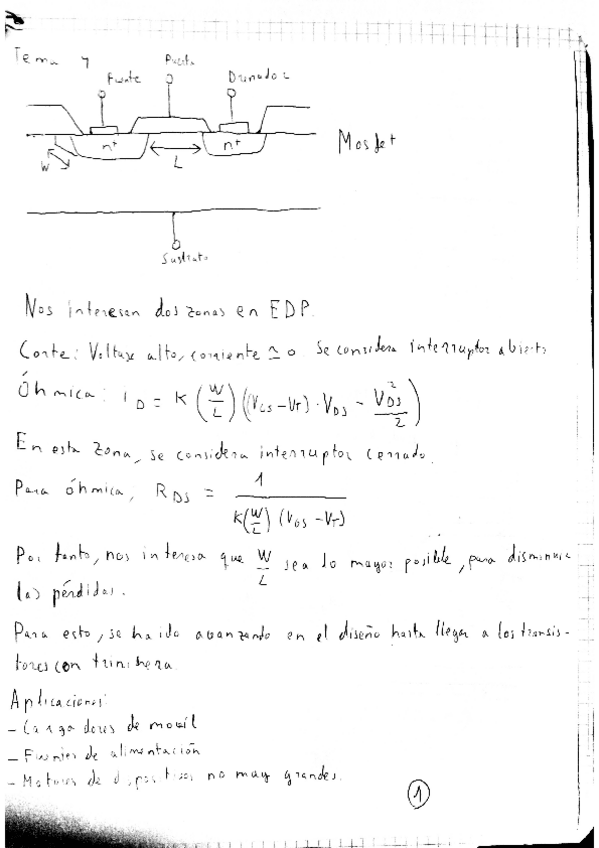 Tema 4
Fuente Puerta Drenador
n+ n+
W L
Mosfet
Sustrato
Nos interesan dos zonas en EDP.
Corte: Voltaje alto, corriente ≃ 0 Se considera interruptor abierto
Óhmica: i_D = K (W/L) ((V_GS - V_T) · V_DS - V_DS²/2)
En esta zona, se considera interruptor cerrado.
Para óhmica, R_DS = 1 / (K(W/L) (V_GS - V_T))
Por tanto, nos interesa que W/L sea lo mayor posible, para disminuir
las pérdidas.
Para esto, se ha ido avanzando en el diseño hasta llegar a los transis-
tores con trinchera.
Aplicaciones:
- Cargadores de movil
- Fuentes de alimentación
- Motores de dispositivos no muy grandes.
1